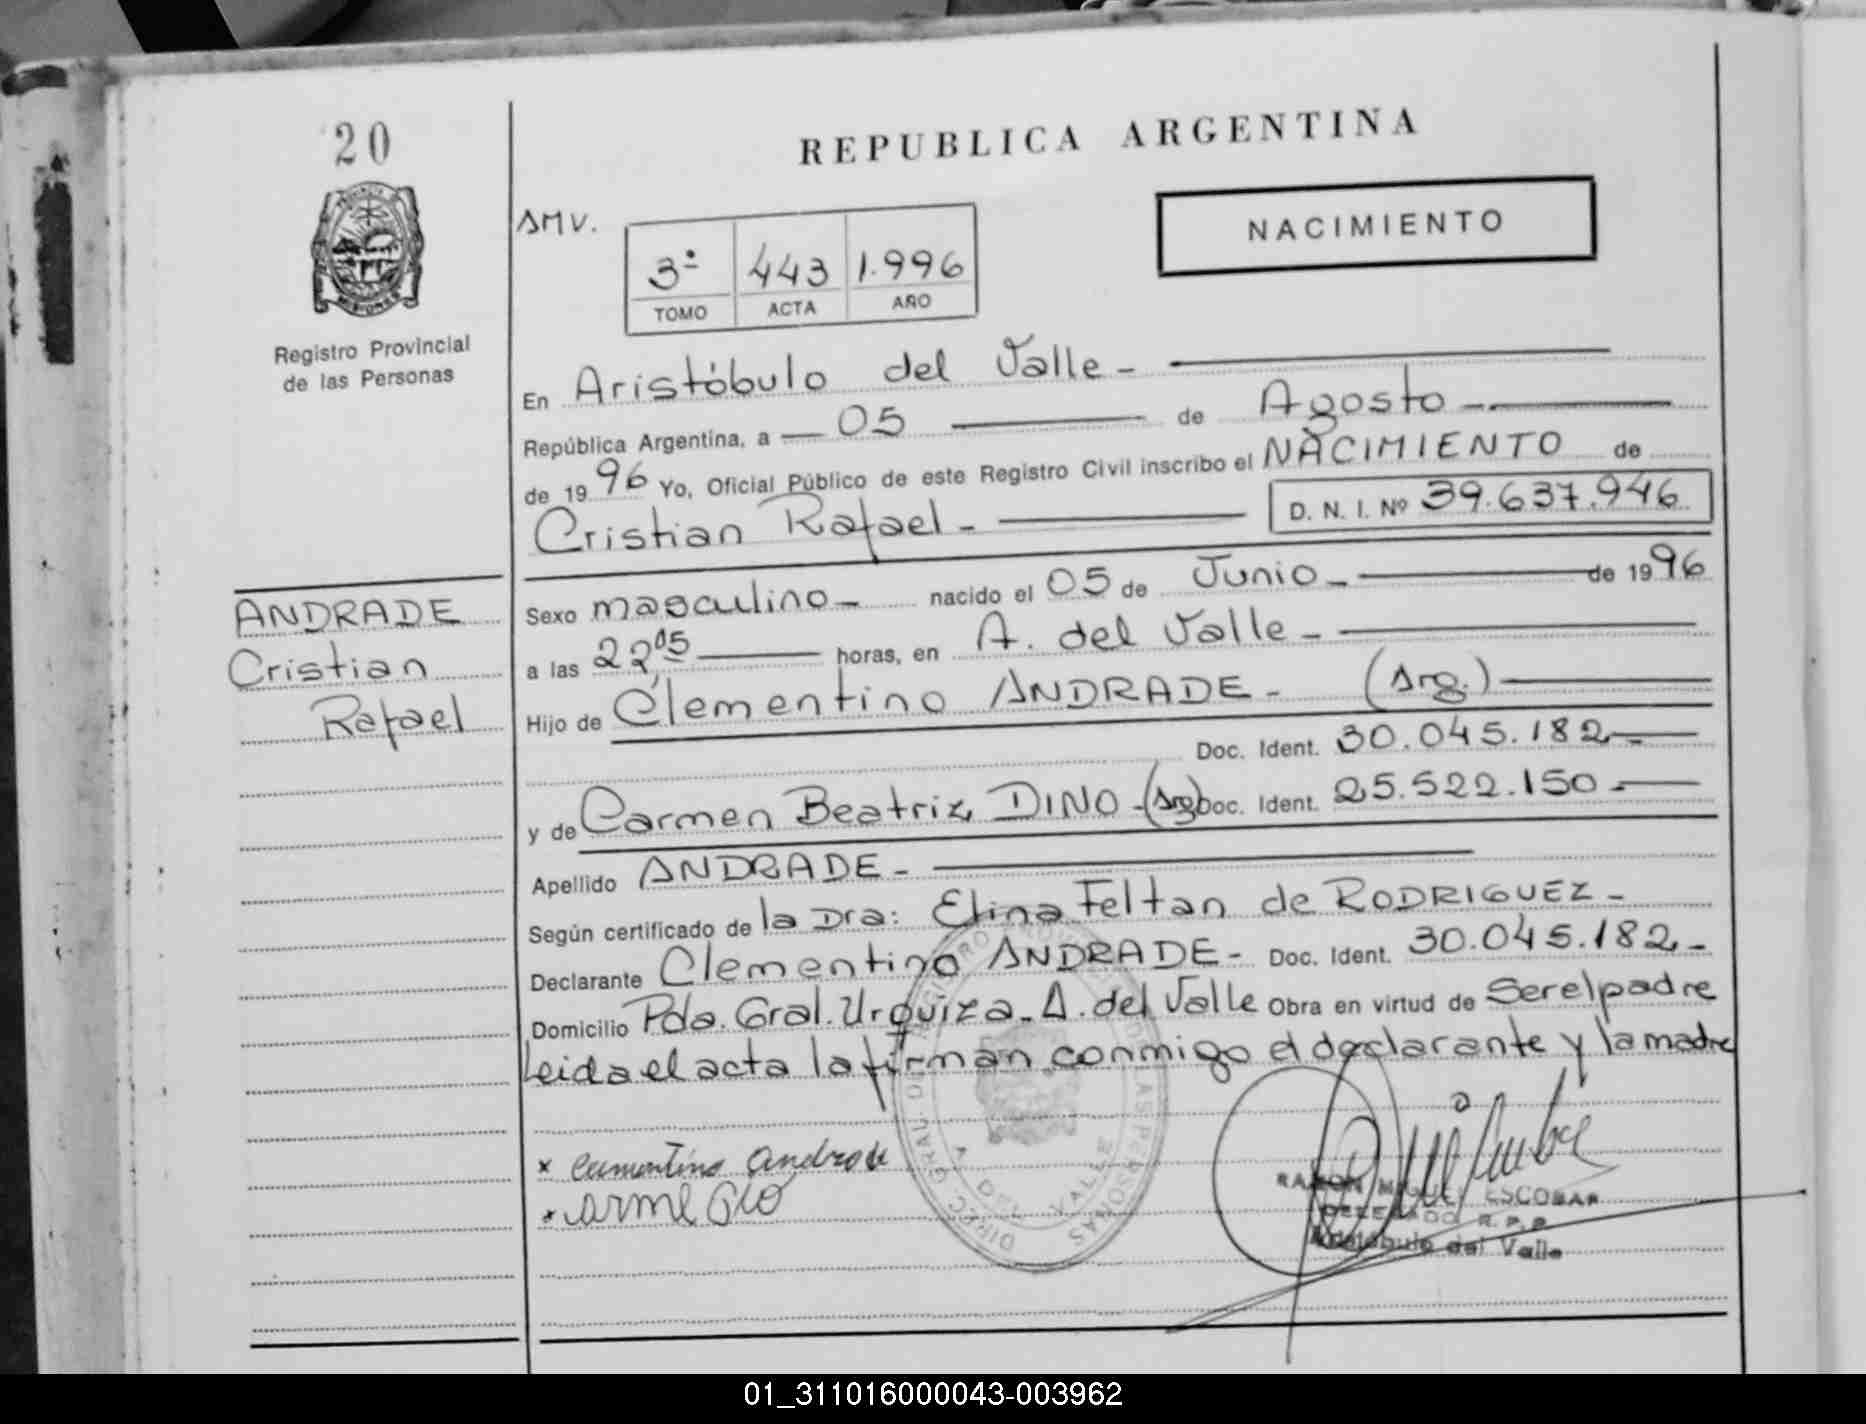 20
REPUBLICA ARGENTINA
NACIMIENTO
AMV.
3º 443 1.996
TOMO ACTA AÑO
Registro Provincial
de las Personas
En Aristóbulo del Valle -
República Argentina, a 05 de Agosto -
de 1996 Yo, Oficial Público de este Registro Civil inscribo el NACIMIENTO de
Cristian Rafael - D. N. I. Nº 39.637.946
ANDRADE
Cristian
Rafael
Sexo masculino - nacido el 05 de Junio - de 1996
a las 22,05 horas, en A. del Valle -
Hijo de Clementino ANDRADE - (Arg.)
Doc. Ident. 30.045.182 -
y de Carmen Beatriz DINO - (Arg) Doc. Ident. 25.522.150 -
Apellido ANDRADE -
Según certificado de la Dra: Elina Feltan de RODRIGUEZ -
Declarante Clementino ANDRADE - Doc. Ident. 30.045.182 -
Domicilio Pda. Gral. Urquiza - A. del Valle Obra en virtud de Ser el padre
Leida el acta la firman conmigo el declarante y la madre
RAMON MIGUEL ESCOBAR
DELEGADO R.P.P.
Aristóbulo del Valle
01_311016000043-003962